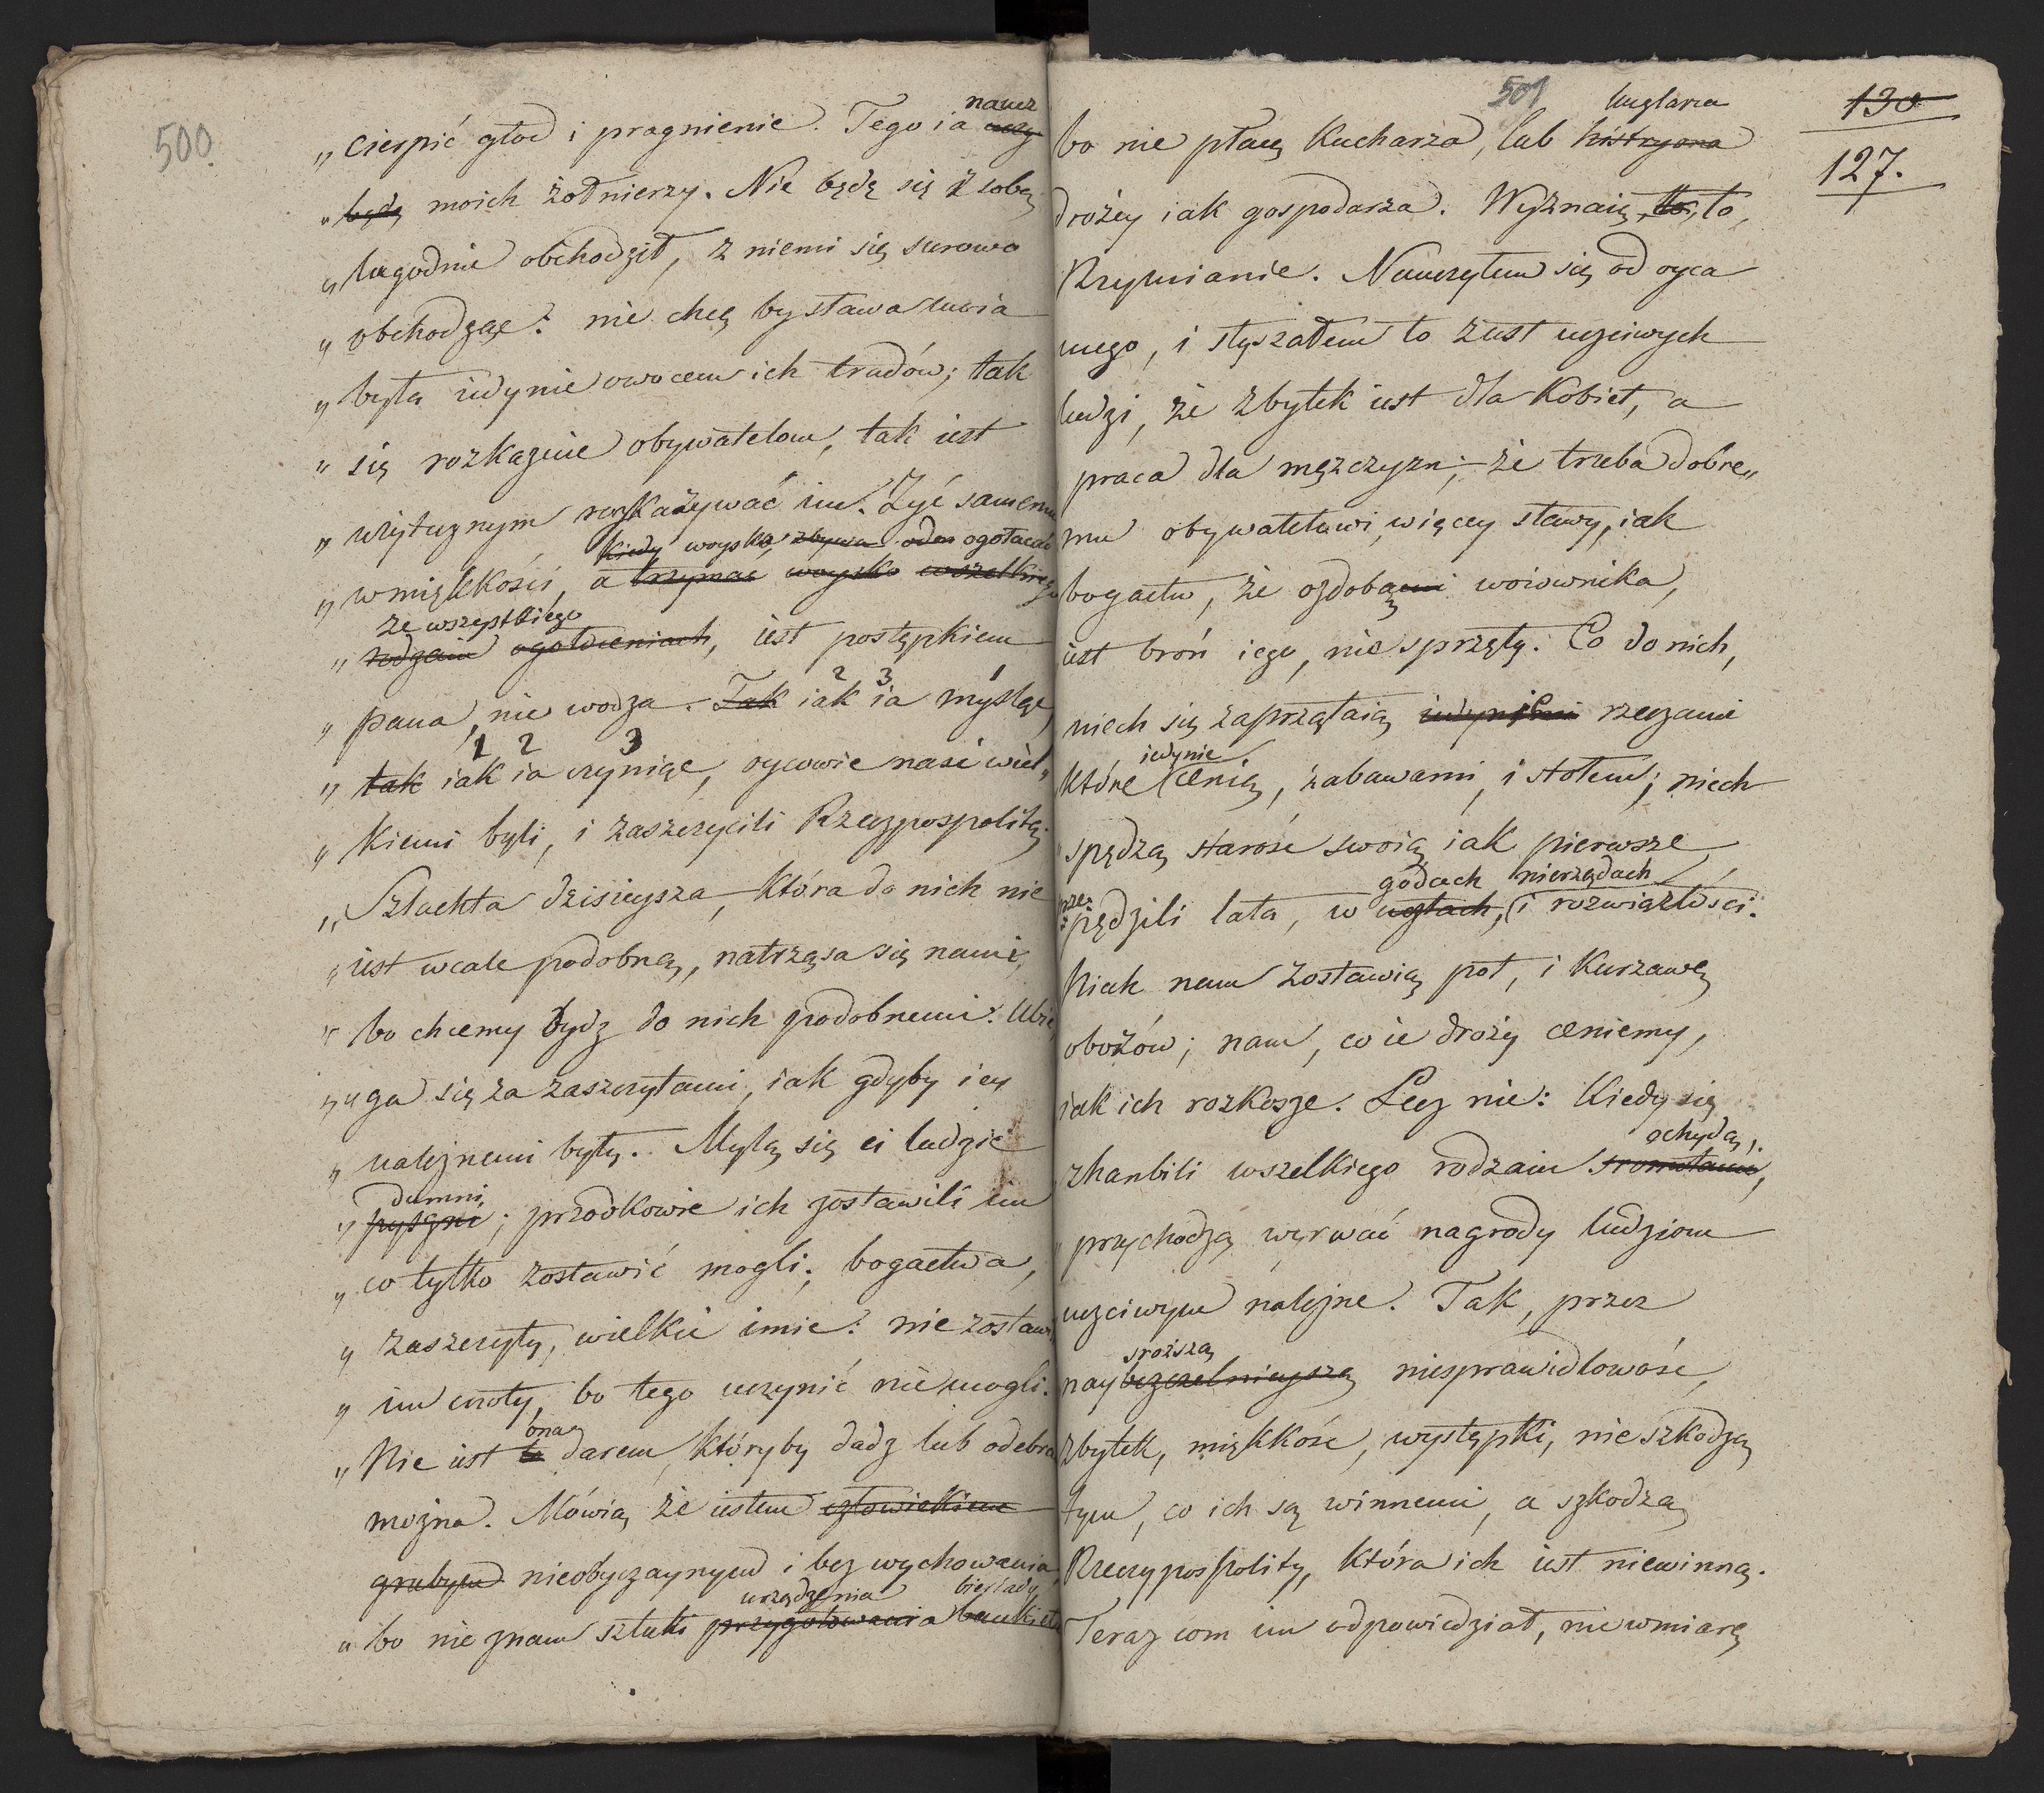 500
naucz
„ cierpić głod i pragnienie. Tego ia uczy
„ będę moich żołnierzy. Nie będę się z sobą
„ łagodnie obchodził, z niemi się surowo
„ obchodząc: nie chcę by sława moia
„ była iedynie owocem ich trudów; tak
„ się rozkazuie obywatelom, tak iest
„ użytecznym rozkazywać im. Żyć samemu
kiedy woysko zbywa ogołacać
„ w miękkości, a trzymać woysko wszelkiego
ze wszystkiego
„ rodzaiu ogołoceniach, iest postępkiem
2 3 1
„ pana, nie wodza. Tak iak ia myśląc,
1 2 3
„ tak iak ia czyniąc, oycowie nasi wiel„
„ kiemi byli, i zaszczycili Rzeczpospolitę.
„ Szlachta dzisieysza, która do nich nie
„ iest wcale podobną, natrząsa się nami,
„ bo chcemy bydz do nich podobnemi. Ubie
„ ga się za zaszczytami, iak gdyby iey
„ należnemi były. Mylą się ci ludzie
dumni
„ pyszni; przodkowie ich zostawili im
„ co tylko zostawić mogli; bogactwa,
„ zaszczyty, wielkie imie: nie zostawi„
„ im cnoty, bo tego uczynić nie mogli.
ona
„ Nie iest to darem, któryby dadz lub odebra
można. Mówią, że iestem człowiekiem
grubym nieobyczaynym i bez wychowania,
urządzenia biesiady
„ bo nie znam sztuki przygotowania bankietu
501
130
127.
kuglarza
bo nie płacę kucharza, lub histryona
drożey iak gospodarza. Wyznaię to, to,
Rzymianie. Nauczyłem się od oyca
mego, i słyszałem to z ust uczciwych
ludzi, że zbytek iest dla kobiet, a
praca dla mężczyzn; że trzeba dobre„
mu obywatelowi więcey sławy, iak
bogactw, że ozdobą woiownika,
iest broń iego, nie sprzęty. Co do nich,
niech się zaprzątaią iedynemi rzeczami
iedynie
które cenią, zabawami, i stołem; niech
spędzą starość swoią iak pierwsze
godach nierządach
prze„
spędzili lata, w ucztach, i rozwiązłości.
Niech nam zostawią pot, i kurzawę
obozów; nam, co ie droży ceniemy,
iak ich rozkosze. Lecz nie: kiedy się
ochydą,
zhanbili wszelkiego rodzaiu sromotami,
przychodzą wyrwać nagrody ludziom
uczciwym należne. Tak, przez
sroższą
naybezczelnieyszą niesprawidłowość,
zbytek, miękkość, występki, nie szkodzą
tym, co ich są winnemi, a szkodzą
Rzeczypospolity, która ich iest niewinną.
Teraz com im odpowiedział, nie w miarę